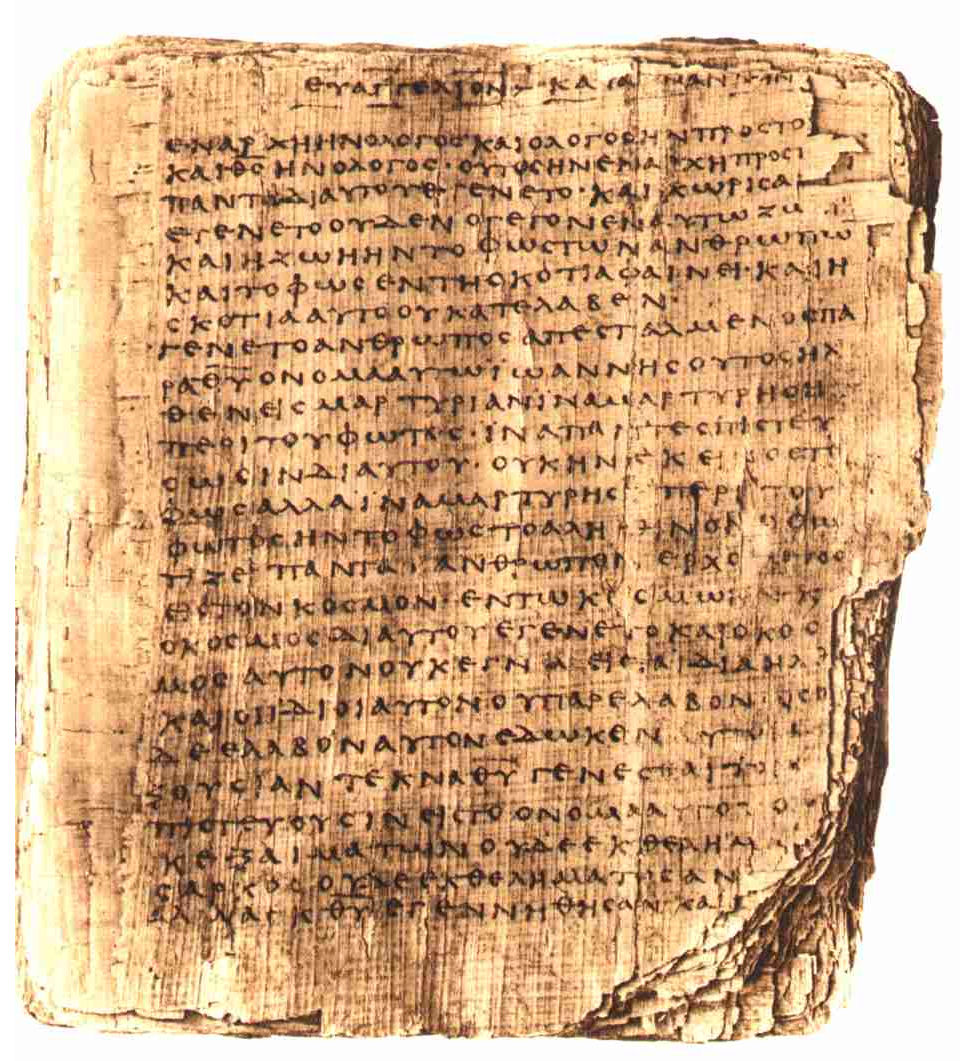 ΕΥΑΓΓΕΛΙΟΝ ΚΑΤΑ
ΕΝΑΡΧΗΗΝΟΛΟΓΟϹΚΑΙΟΛΟΓΟϹΗΝΠΡΟϹΤΟ
ΚΑΙΘ̅Ϲ̅ΗΝΟΛΟΓΟϹ·ΟΥΤΟϹΗΝΕΝΑΡΧΗΠΡΟϹΤ
ΠΑΝΤΑΔΙΑΥΤΟΥΕΓΕΝΕΤΟ·ΚΑΙΧΩΡΙϹΑ
ΕΓΕΝΕΤΟΟΥΔΕΝΟΓΕΓΟΝΕΝΕΝΑΥΤΩΖΩ
ΚΑΙΗΖΩΗΗΝΤΟΦΩϹΤΩΝΑΝΘΡΩΠΩ
ΚΑΙΤΟΦΩϹΕΝΤΗϹΚΟΤΙΑΦΑΙΝΕΙ·ΚΑΙΗ
ϹΚΟΤΙΑΑΥΤΟΟΥΚΑΤΕΛΑΒΕΝ·
ΓΕΝΕΤΟΑΝΘΡΩΠΟϹΑΠΕϹΤΑΛΜΕΝΟϹΠΑ
ΡΑΘ̅Υ̅ΟΝΟΜΑΑΥΤΩΪΩΑΝΝΗϹΟΥΤΟϹΗΛ
ΘΕΝΕΙϹΜΑΡΤΥΡΙΑΝΙΝΑΜΑΡΤΥΡΗϹΗ
ΠΕΡΙΤΟΥΦΩΤΟϹ·ΙΝΑΠΑΝΤΕϹΠΙϹΤΕΥ
ϹΩϹΙΝΔΙΑΥΤΟΥ·ΟΥΚΗΝΕΚΕΙΝΟϹΤΟ
ΦΩϹΑΛΛΑΙΝΑΜΑΡΤΥΡΗϹΗΠΕΡΙΤΟΥ
ΦΩΤΟϹΗΝΤΟΦΩϹΤΟΑΛΗΘΙΝΟΝΟΦΩ
ΤΙΖΕΙΠΑΝΤΑΑΝΘΡΩΠΟΝΕΡΧΟΜΕΝΟΝ
ΕΙϹΤΟΝΚΟϹΜΟΝ·ΕΝΤΩΚΟϹΜΩΗΝΚ
ΟΚΟϹΜΟϹΔΙΑΥΤΟΥΕΓΕΝΕΤΟΚΑΙΟΚΟϹ
ΜΟϹΑΥΤΟΝΟΥΚΕΓΝΩΕΙϹΤΑΙΔΙΑΗΛΘ
ΚΑΙΟΙΙΔΙΟΙΑΥΤΟΝΟΥΠΑΡΕΛΑΒΟΝ·ΟϹΟ
ΔΕΕΛΑΒΟΝΑΥΤΟΝΕΔΩΚΕΝΑΥΤΟΙϹΕ
ΞΟΥϹΙΑΝΤΕΚΝΑΘ̅Υ̅ΓΕΝΕϹΘΑΙΤΟΙϹ
ΠΙϹΤΕΥΟΥϹΙΝΕΙϹΤΟΟΝΟΜΑΑΥΤΟΥΟΥ
ΚΕΞΑΙΜΑΤΩΝΟΥΔΕΕΚΘΕΛΗΜΑ
ϹΑΡΚΟϹΟΥΔΕΕΚΘΕΛΗΜΑΤΟϹΑΝ
ΑΛΛΑΕΚΘ̅Υ̅ΕΓΕΝΝΗΘΗϹΑΝΚΑΙ